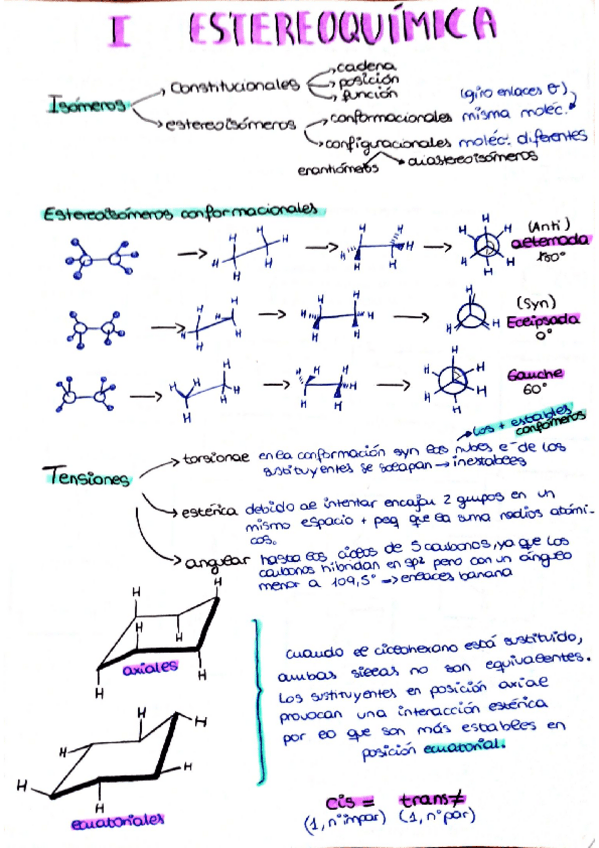 I ESTEREOQUÍMICA
Isómeros
Constitucionales
cadena
posición
función
estereoisómeros
(giro enlaces σ)
conformacionales misma moléc.
configuracionales moléc. diferentes
enantiómeros
diastereoisómeros
Estereoisómeros conformacionales
(Anti)
alternada
180°
(Syn)
Eclipsada
0°
Gauche
60°
los + estables
confórmeros
Tensiones
torsional en la conformación syn las nubes e⁻ de los
sustituyentes se solapan → inestables
estérica debido al intentar encajar 2 grupos en un
mismo espacio + peq que la suma radios atómi-
cos.
angular hasta los ciclos de 5 carbonos, ya que los
carbonos hibridan en sp² pero con un ángulo
menor a 109,5° → enlaces banana
H H H H H H
axiales
Cuando el ciclohexano está sustituido,
ambas sillas no son equivalentes.
Los sustituyentes en posición axial
provocan una interacción estérica
por lo que son más estables en
posición ecuatorial.
H H H H H H
ecuatoriales
cis = trans ≠
(1, nº impar) (1, nº par)